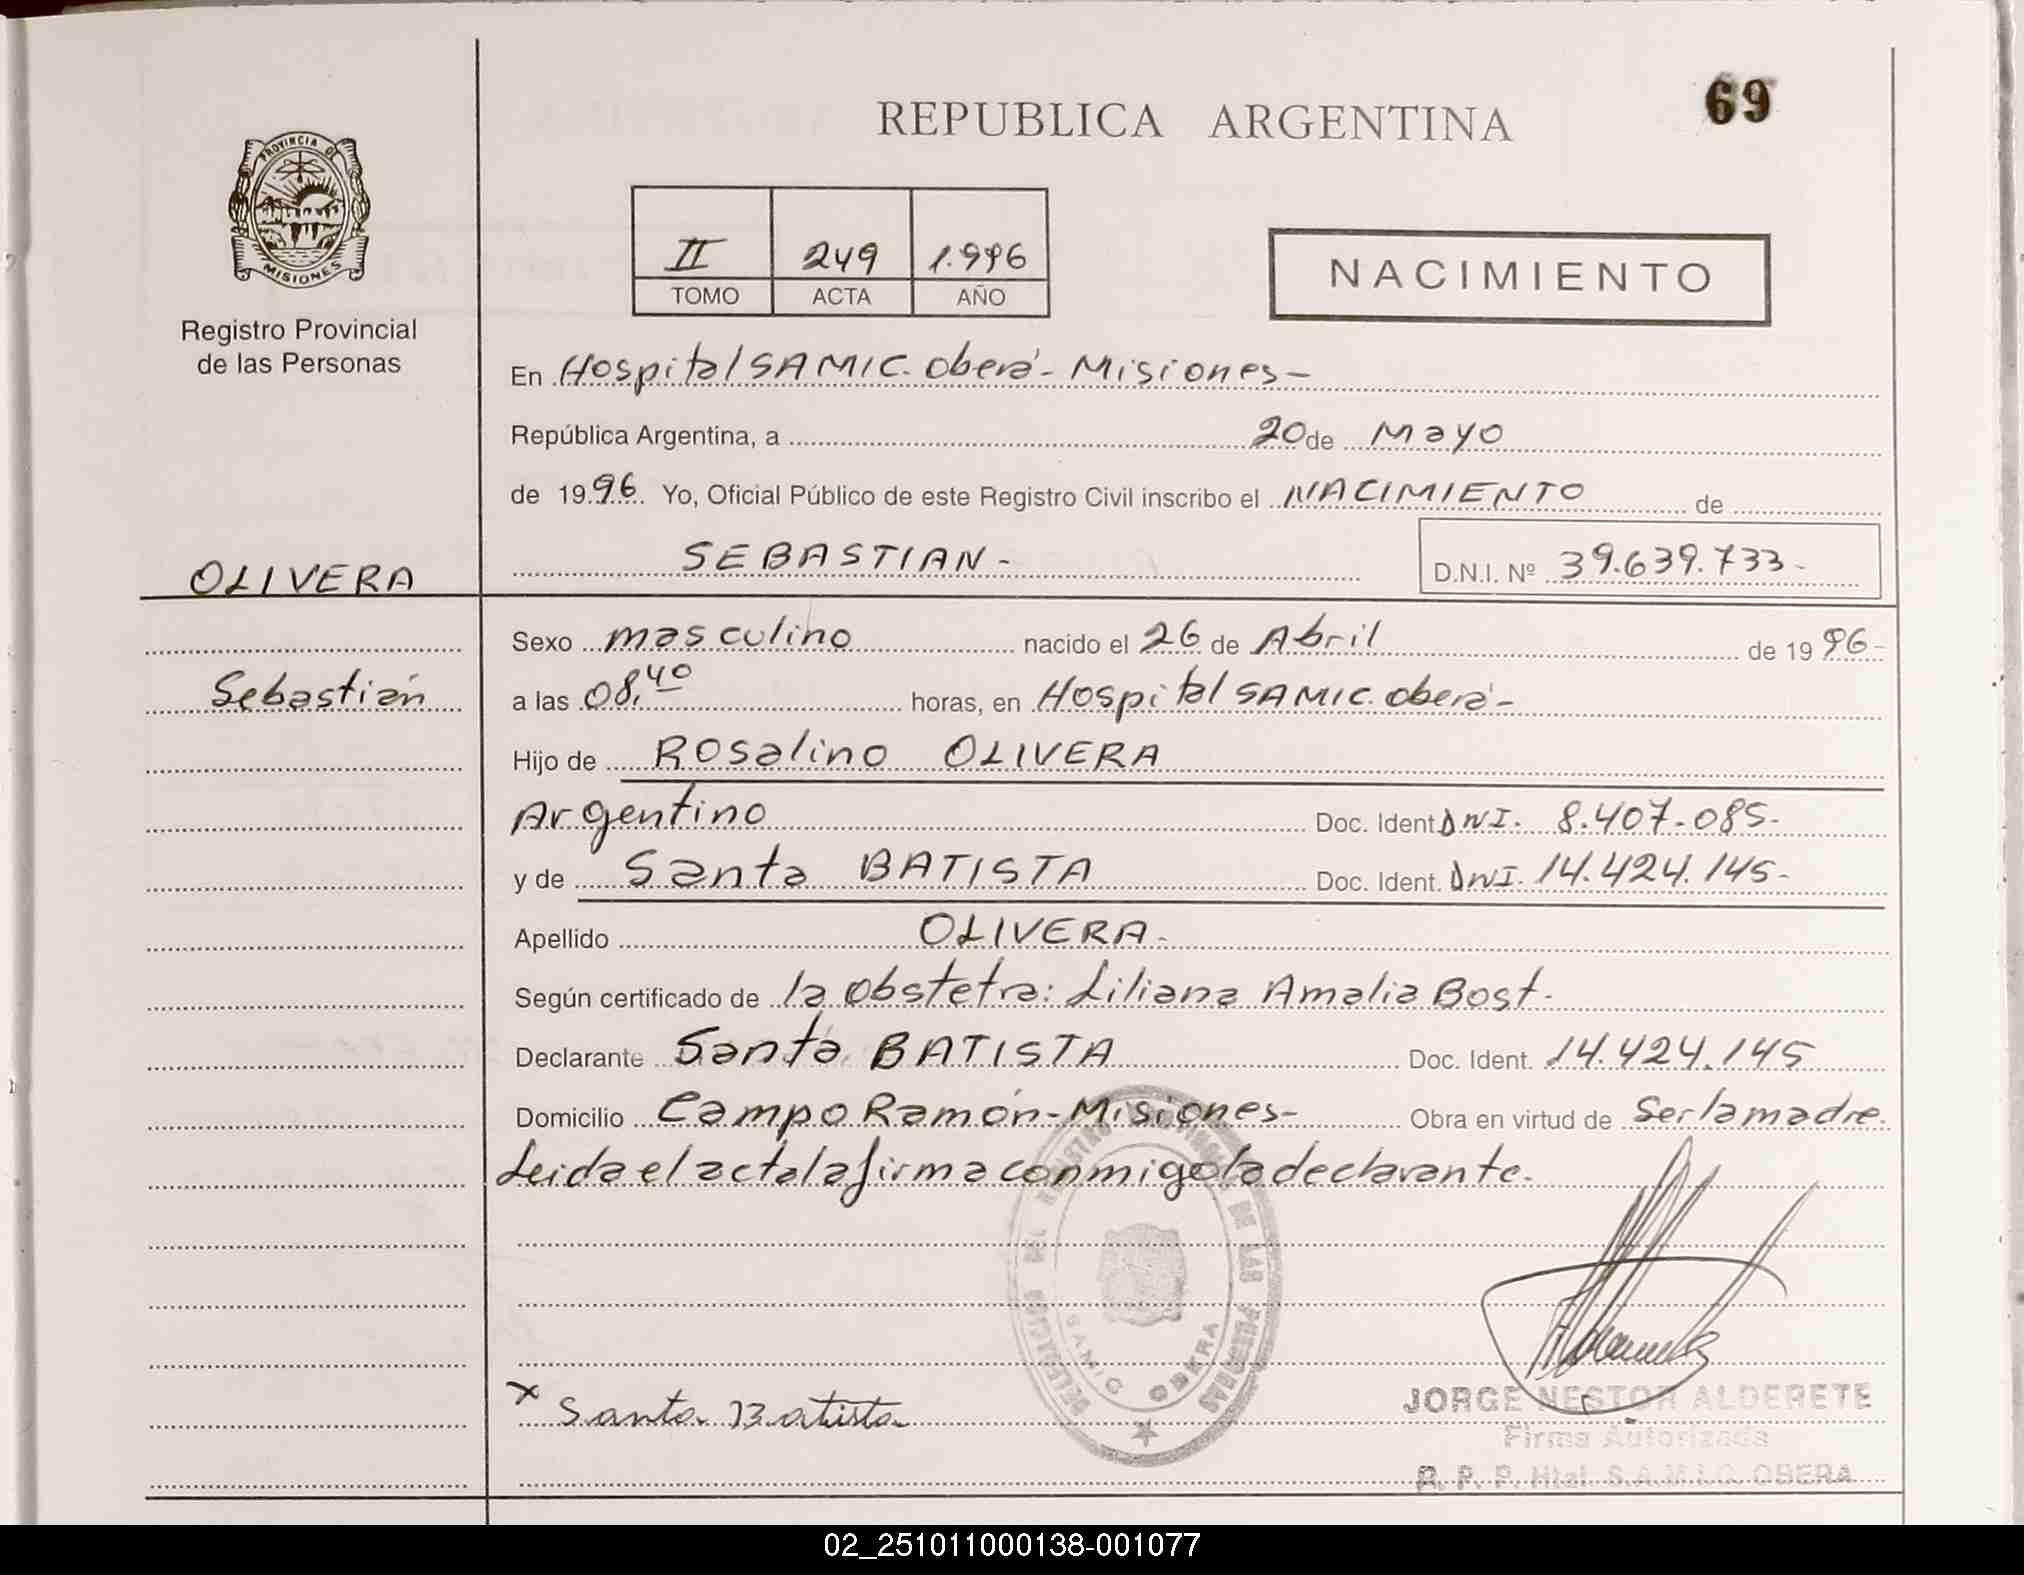 69
REPUBLICA ARGENTINA
PROVINCIA DE
MISIONES
II 249 1.996
TOMO ACTA AÑO
NACIMIENTO
Registro Provincial
de las Personas
En Hospital SAMIC. Oberá - Misiones -
República Argentina, a 20 de Mayo
de 1996 Yo, Oficial Público de este Registro Civil inscribo el NACIMIENTO de
SEBASTIAN - D.N.I. Nº 39.639.733 -
OLIVERA
Sebastián
Sexo masculino nacido el 26 de Abril de 1996 -
a las 08,40 horas, en Hospital SAMIC. Oberá -
Hijo de Rosalino OLIVERA
Argentino Doc. Ident DNI. 8.407.085 -
y de Santa BATISTA Doc. Ident. DNI. 14.424.145 -
Apellido OLIVERA -
Según certificado de la Obstetra: Liliana Amalia Bost -
Declarante Santa BATISTA Doc. Ident. 14.424.145
Domicilio Campo Ramón - Misiones - Obra en virtud de Ser la madre.
Leida el acta la firma conmigo la declarante.
x Santa Batista
DELEGACION DEL REGISTRO PROVINCIAL DE LAS PERSONAS
SAMIC OBERA
JORGE NESTOR ALDERETE
Firma Autorizada
R. P. P. Htal. S.A.M.I.C. OBERA
02_251011000138-001077